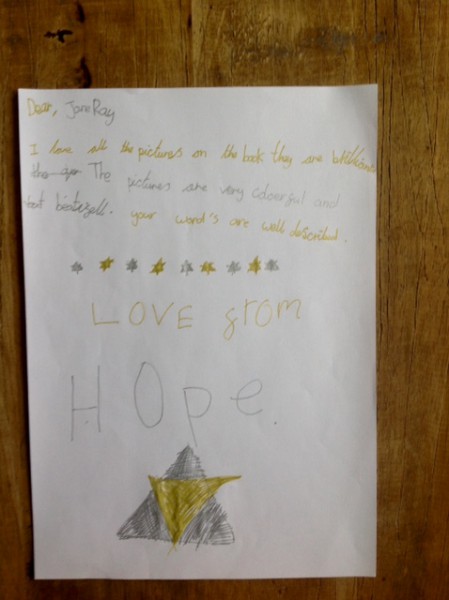 Dear, Jane Ray
I love all the pictures on the book they are
The pictures are very coloerful and
your word's are well described.
LOVE from
HOpe.